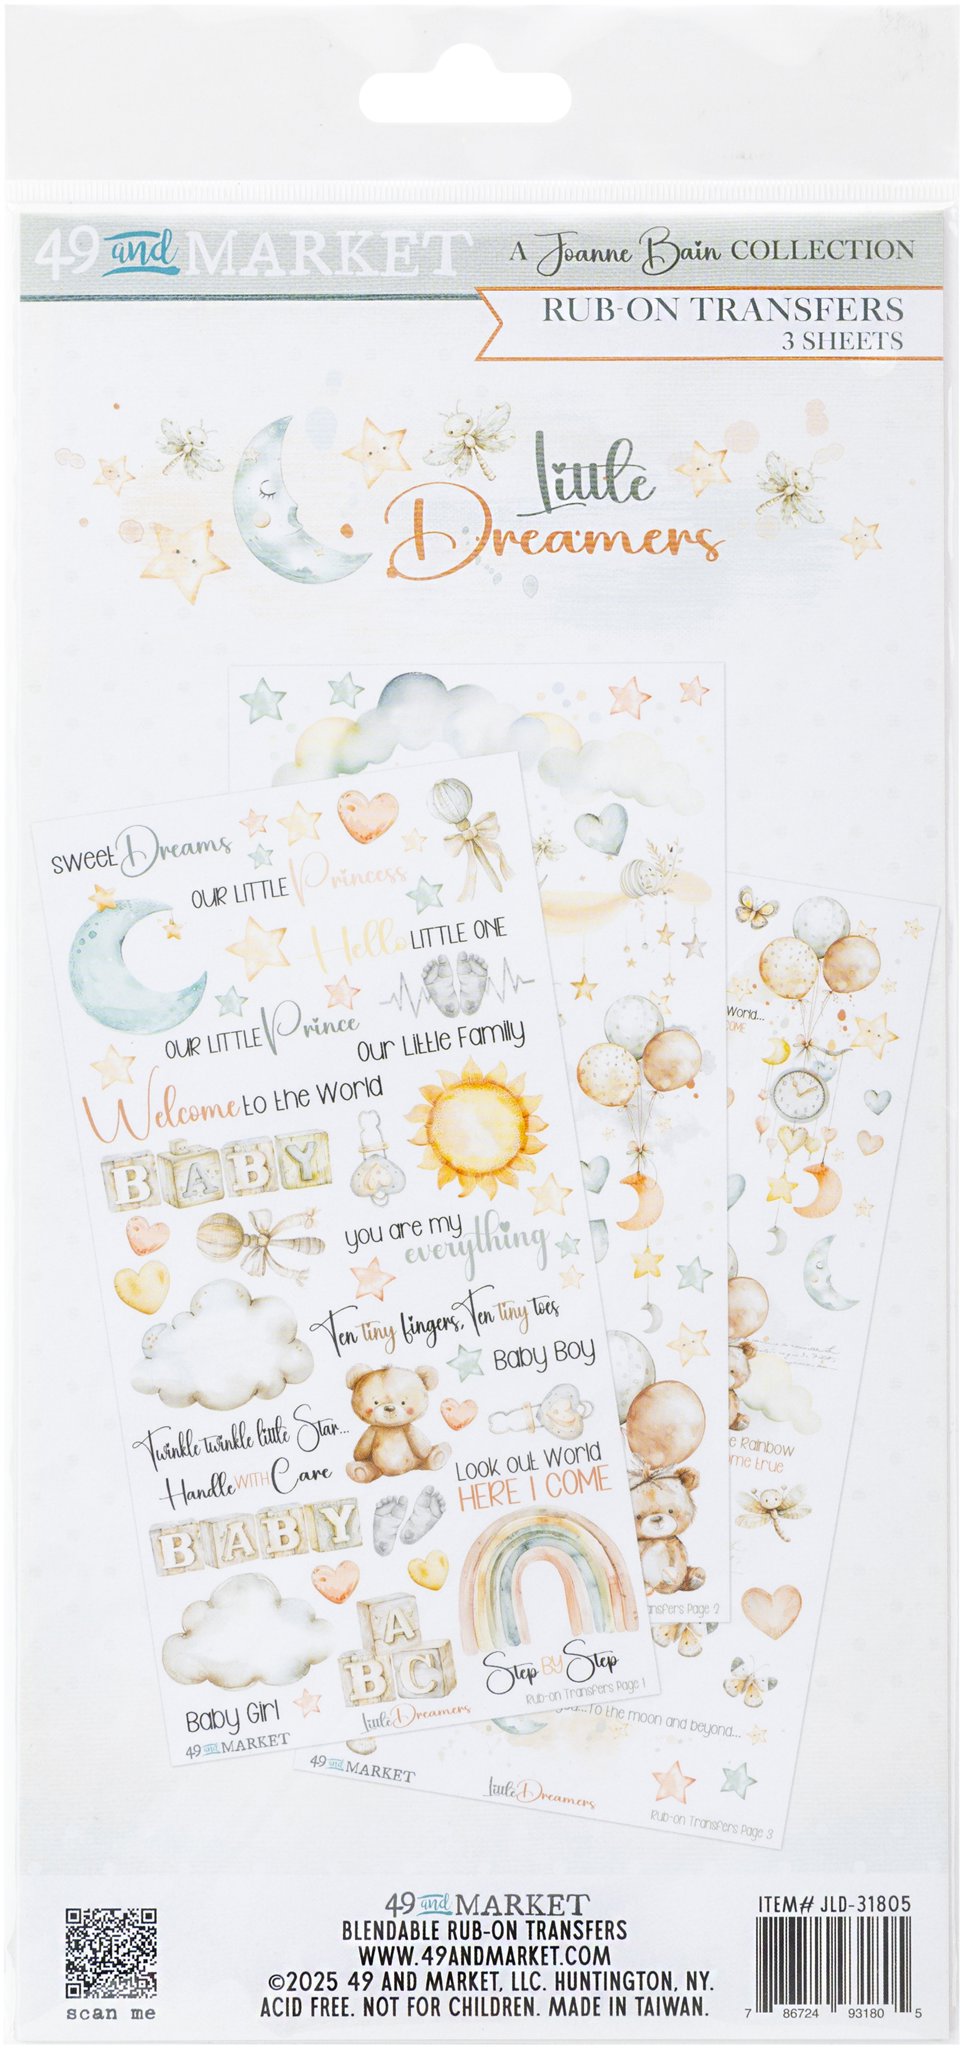 49 and MARKET
A Joanne Bain COLLECTION
RUB-ON TRANSFERS
3 SHEETS
Little
Dreamers
sweet Dreams
OUR LITTLE Princess
Hello LITTLE ONE
OUR LITTLE Prince
Our Little Family
Welcome to the World
BABY
you are my
everything
Ten tiny fingers, Ten tiny toes
Baby Boy
Twinkle twinkle little Star...
Handle WITH Care
Look out World
HERE I COME
BABY
A
BC
Step BY Step
Rub-on Transfers Page 1
Baby Girl
Little Dreamers
49 and MARKET
World...
COME
e Rainbow
ome true
ansfers Page 2
...To the moon and beyond...
49 and MARKET
Little Dreamers
Rub-on Transfers Page 3
scan me
49 and MARKET
BLENDABLE RUB-ON TRANSFERS
WWW.49ANDMARKET.COM
©2025 49 AND MARKET, LLC. HUNTINGTON, NY.
ACID FREE. NOT FOR CHILDREN. MADE IN TAIWAN.
ITEM# JLD-31805
7 86724 93180 5